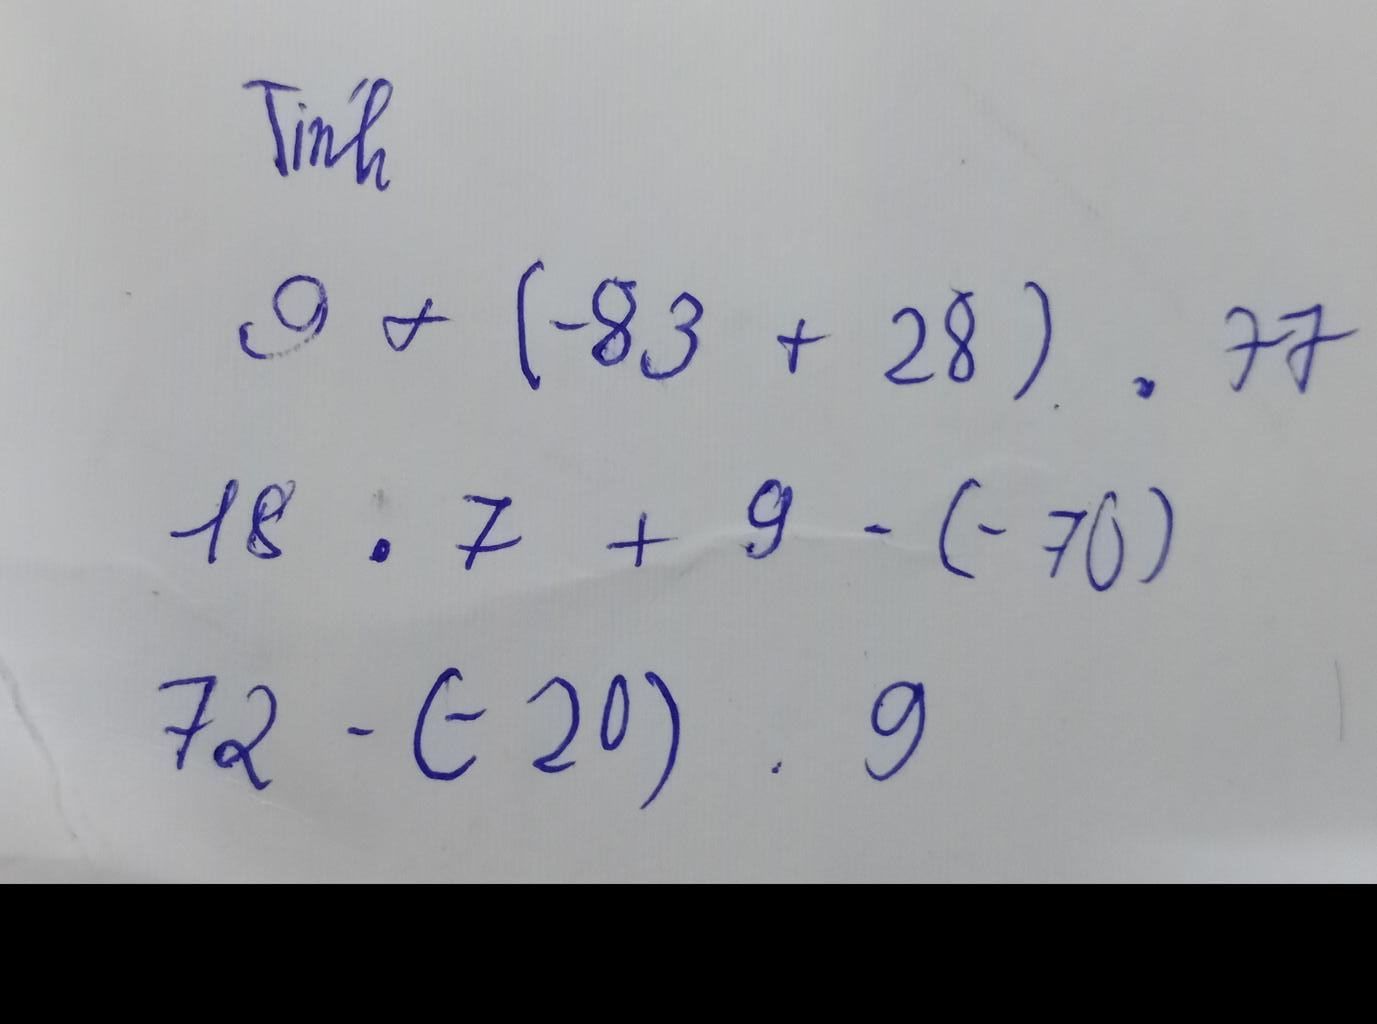 Tính
9 + (-83 + 28) . 77
18 . 7 + 9 - (- 70)
72 - (- 20) . 9